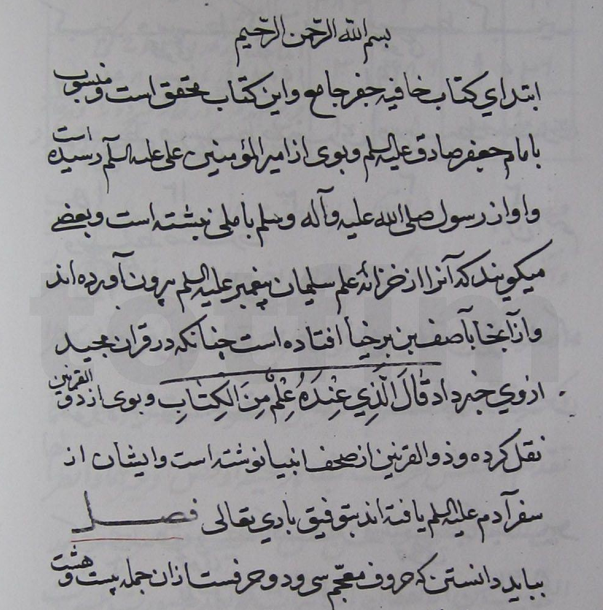 بسم الله الرّحمن الرّحیم
ابتدای کتاب خافیه جفر جامع و این کتاب محقق است و منسوب
بامام جعفر صادق علیه السلم و بوی از امیر المؤمنین علی علیه السلم رسیده است
و او از رسول صلی الله علیه و آله وسلم باملی نبشته است و بعضے
میکویند که آنرا از خزانهٔ علم سلیمان پیغمبر علیه السلم بیرون آورده اند
و از آنجا بآصف بن برحیا افتاده است چنانکه در قران مجید
ازوی خبر داد قَالَ الَّذِي عِنْدَهُ عِلْمٌ مِنَ الْكِتَابِ و بوی از ذو القرنین
نقل کرده و ذو القرنین از صحف انبیا نوشته است و ایشان از
سفر آدم علیه السلم یافته اند بتوفیق باری تعالی فصل
بباید دانستن که حروف معجّم سی و دو حرفست از آن جمله بیست و هشت